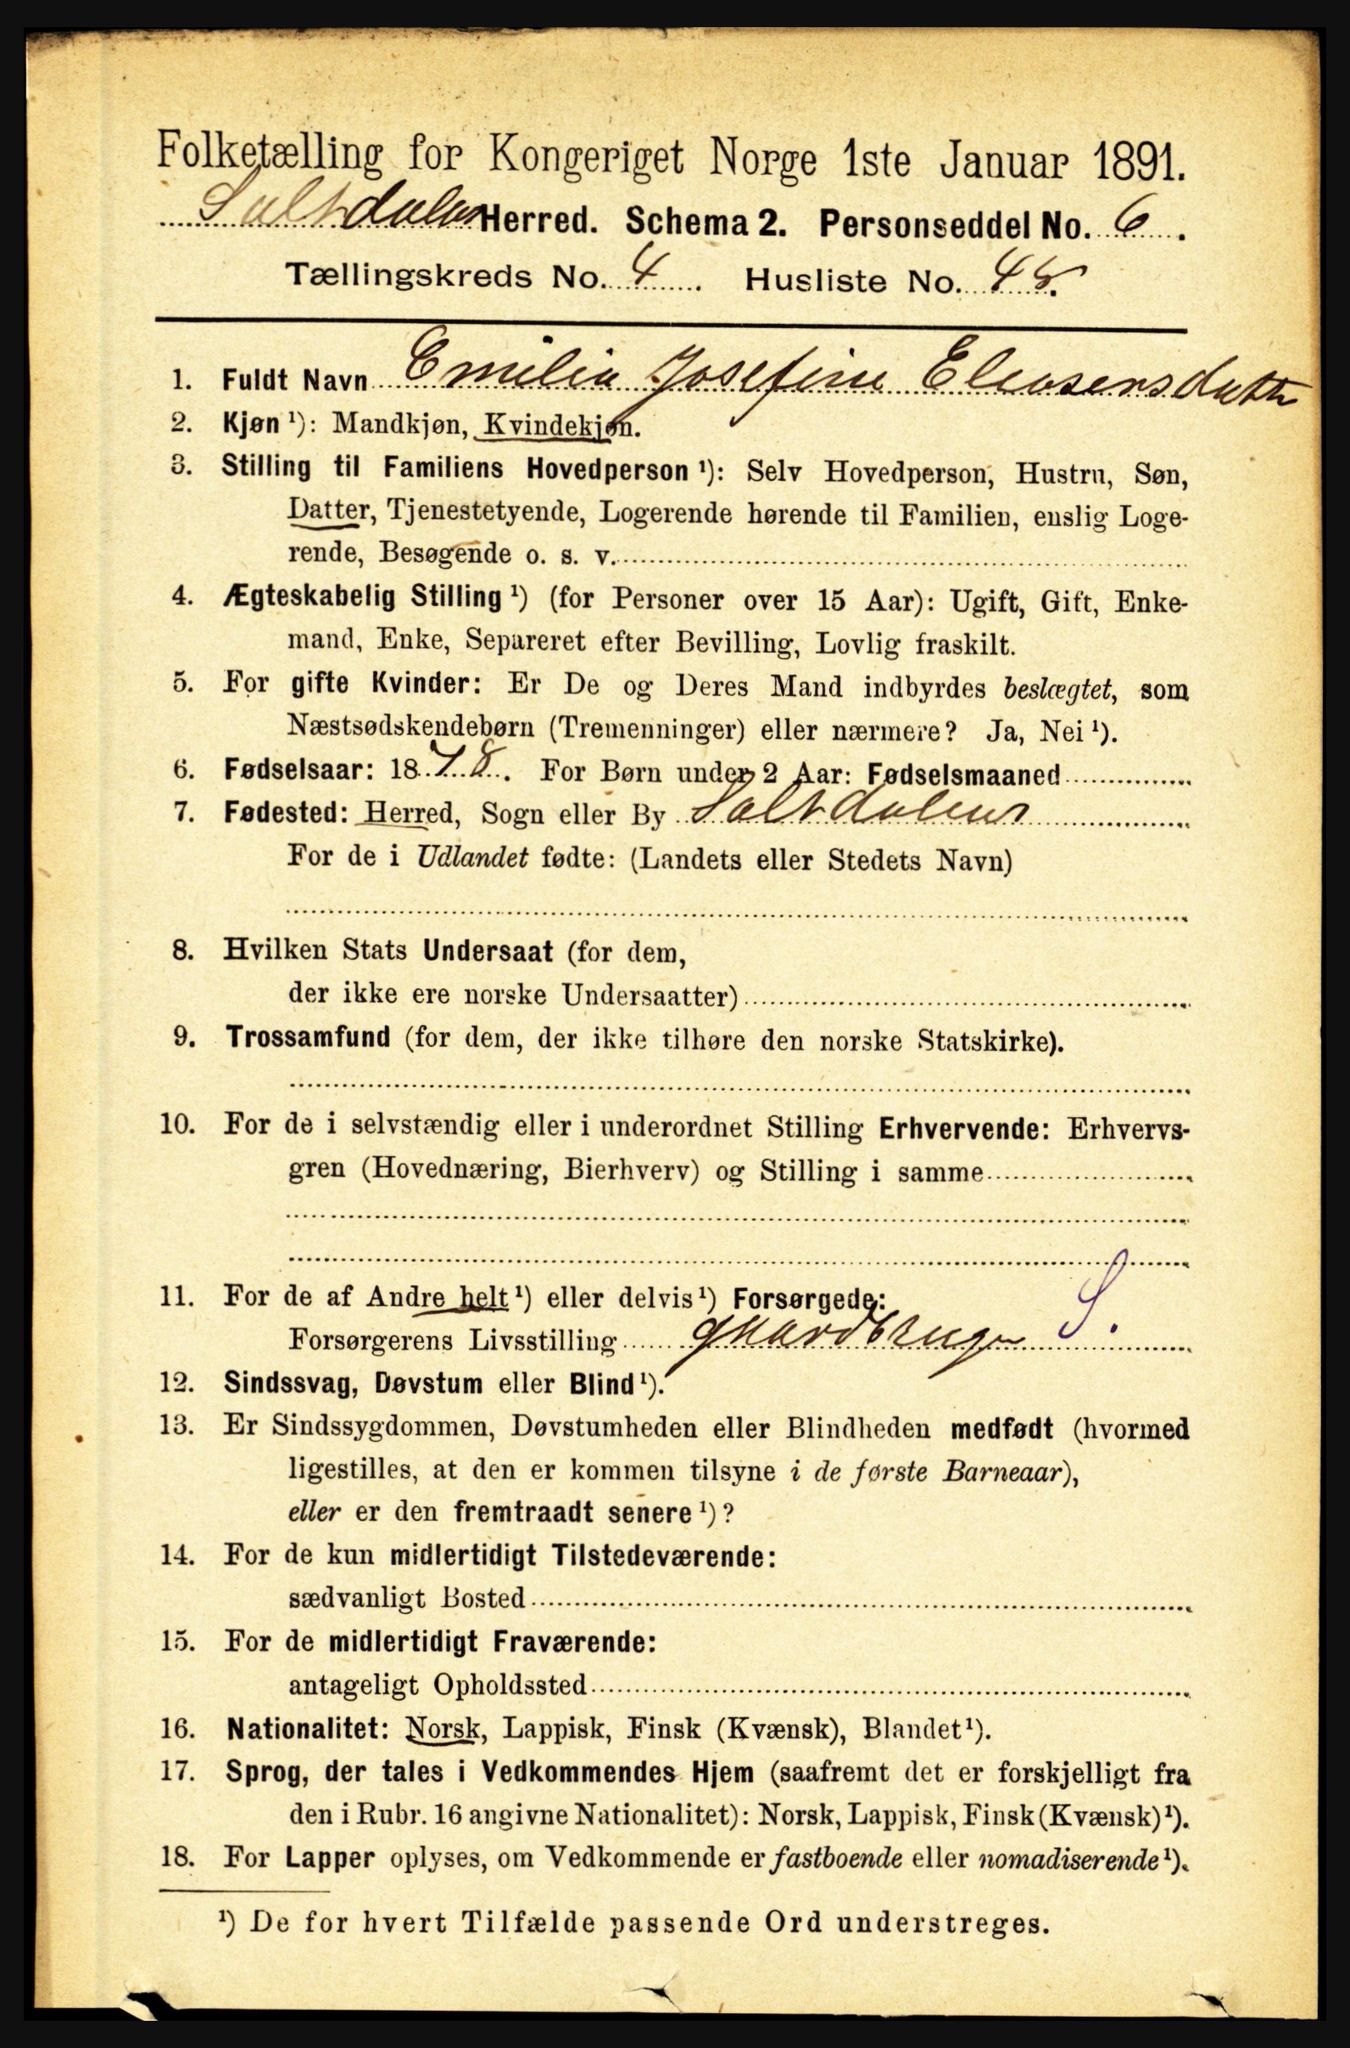 Folketælling for Kongeriget Norge 1ste Januar 1891.
Saltdalen Herred. Schema 2. Personseddel No. 6.
Tællingskreds No. 4. Husliste No. 48.
1. Fuldt Navn Emilie Josefine Eleasensdatter
2. Kjøn ¹): Mandkjøn, Kvindekjøn.
3. Stilling til Familiens Hovedperson ¹): Selv Hovedperson, Hustru, Søn,
Datter, Tjenestetyende, Logerende hørende til Familien, enslig Loge-
rende, Besøgende o. s. v.
4. Ægteskabelig Stilling ¹) (for Personer over 15 Aar): Ugift, Gift, Enke-
mand, Enke, Separeret efter Bevilling, Lovlig fraskilt.
5. For gifte Kvinder: Er De og Deres Mand indbyrdes beslægtet, som
Næstsødskendebørn (Tremenninger) eller nærmere? Ja, Nei ¹).
6. Fødselsaar: 1878. For Børn under 2 Aar: Fødselsmaaned
7. Fødested: Herred, Sogn eller By Saltdalen
For de i Udlandet fødte: (Landets eller Stedets Navn)
8. Hvilken Stats Undersaat (for dem,
der ikke ere norske Undersaatter)
9. Trossamfund (for dem, der ikke tilhøre den norske Statskirke).
10. For de i selvstændig eller i underordnet Stilling Erhvervende: Erhvervs-
gren (Hovednæring, Bierhverv) og Stilling i samme
11. For de af Andre helt ¹) eller delvis ¹) Forsørgede:
Forsørgerens Livsstilling Gaardbruger S.
12. Sindssvag, Døvstum eller Blind ¹).
13. Er Sindssygdommen, Døvstumheden eller Blindheden medfødt (hvormed
ligestilles, at den er kommen tilsyne i de første Barneaar),
eller er den fremtraadt senere ¹)?
14. For de kun midlertidigt Tilstedeværende:
sædvanligt Bosted
15. For de midlertidigt Fraværende:
antageligt Opholdssted
16. Nationalitet: Norsk, Lappisk, Finsk (Kvænsk), Blandet ¹).
17. Sprog, der tales i Vedkommendes Hjem (saafremt det er forskjelligt fra
den i Rubr. 16 angivne Nationalitet): Norsk, Lappisk, Finsk (Kvænsk) ¹).
18. For Lapper oplyses, om Vedkommende er fastboende eller nomadiserende ¹).
¹) De for hvert Tilfælde passende Ord understreges.